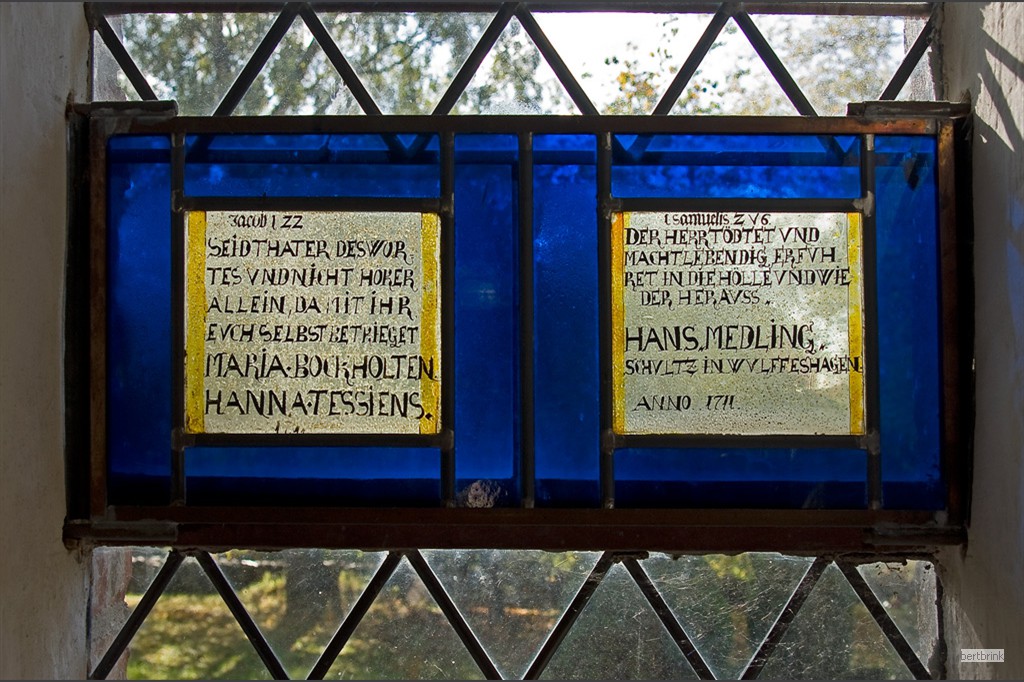 Jacob 1 22
SEIDTHATER DES WOR
TES VND NICHT HORER
ALLEIN, DAMIT IHR
EVCH SELBST BETRIEGET
MARIA·BOCKHOLTEN
HANNA·TESSIENS.
1 Samuelis 2 V 6
DER HERR TÖDTET VND
MACHT LEBENDIG, ERFVH
RET IN DIE HÖLLE VND WIE
DER, HERAVSS.
HANS, MEDLING,
SCHVLTZ IN WVLFFESHAGEN
ANNO 1711.
bertbrink